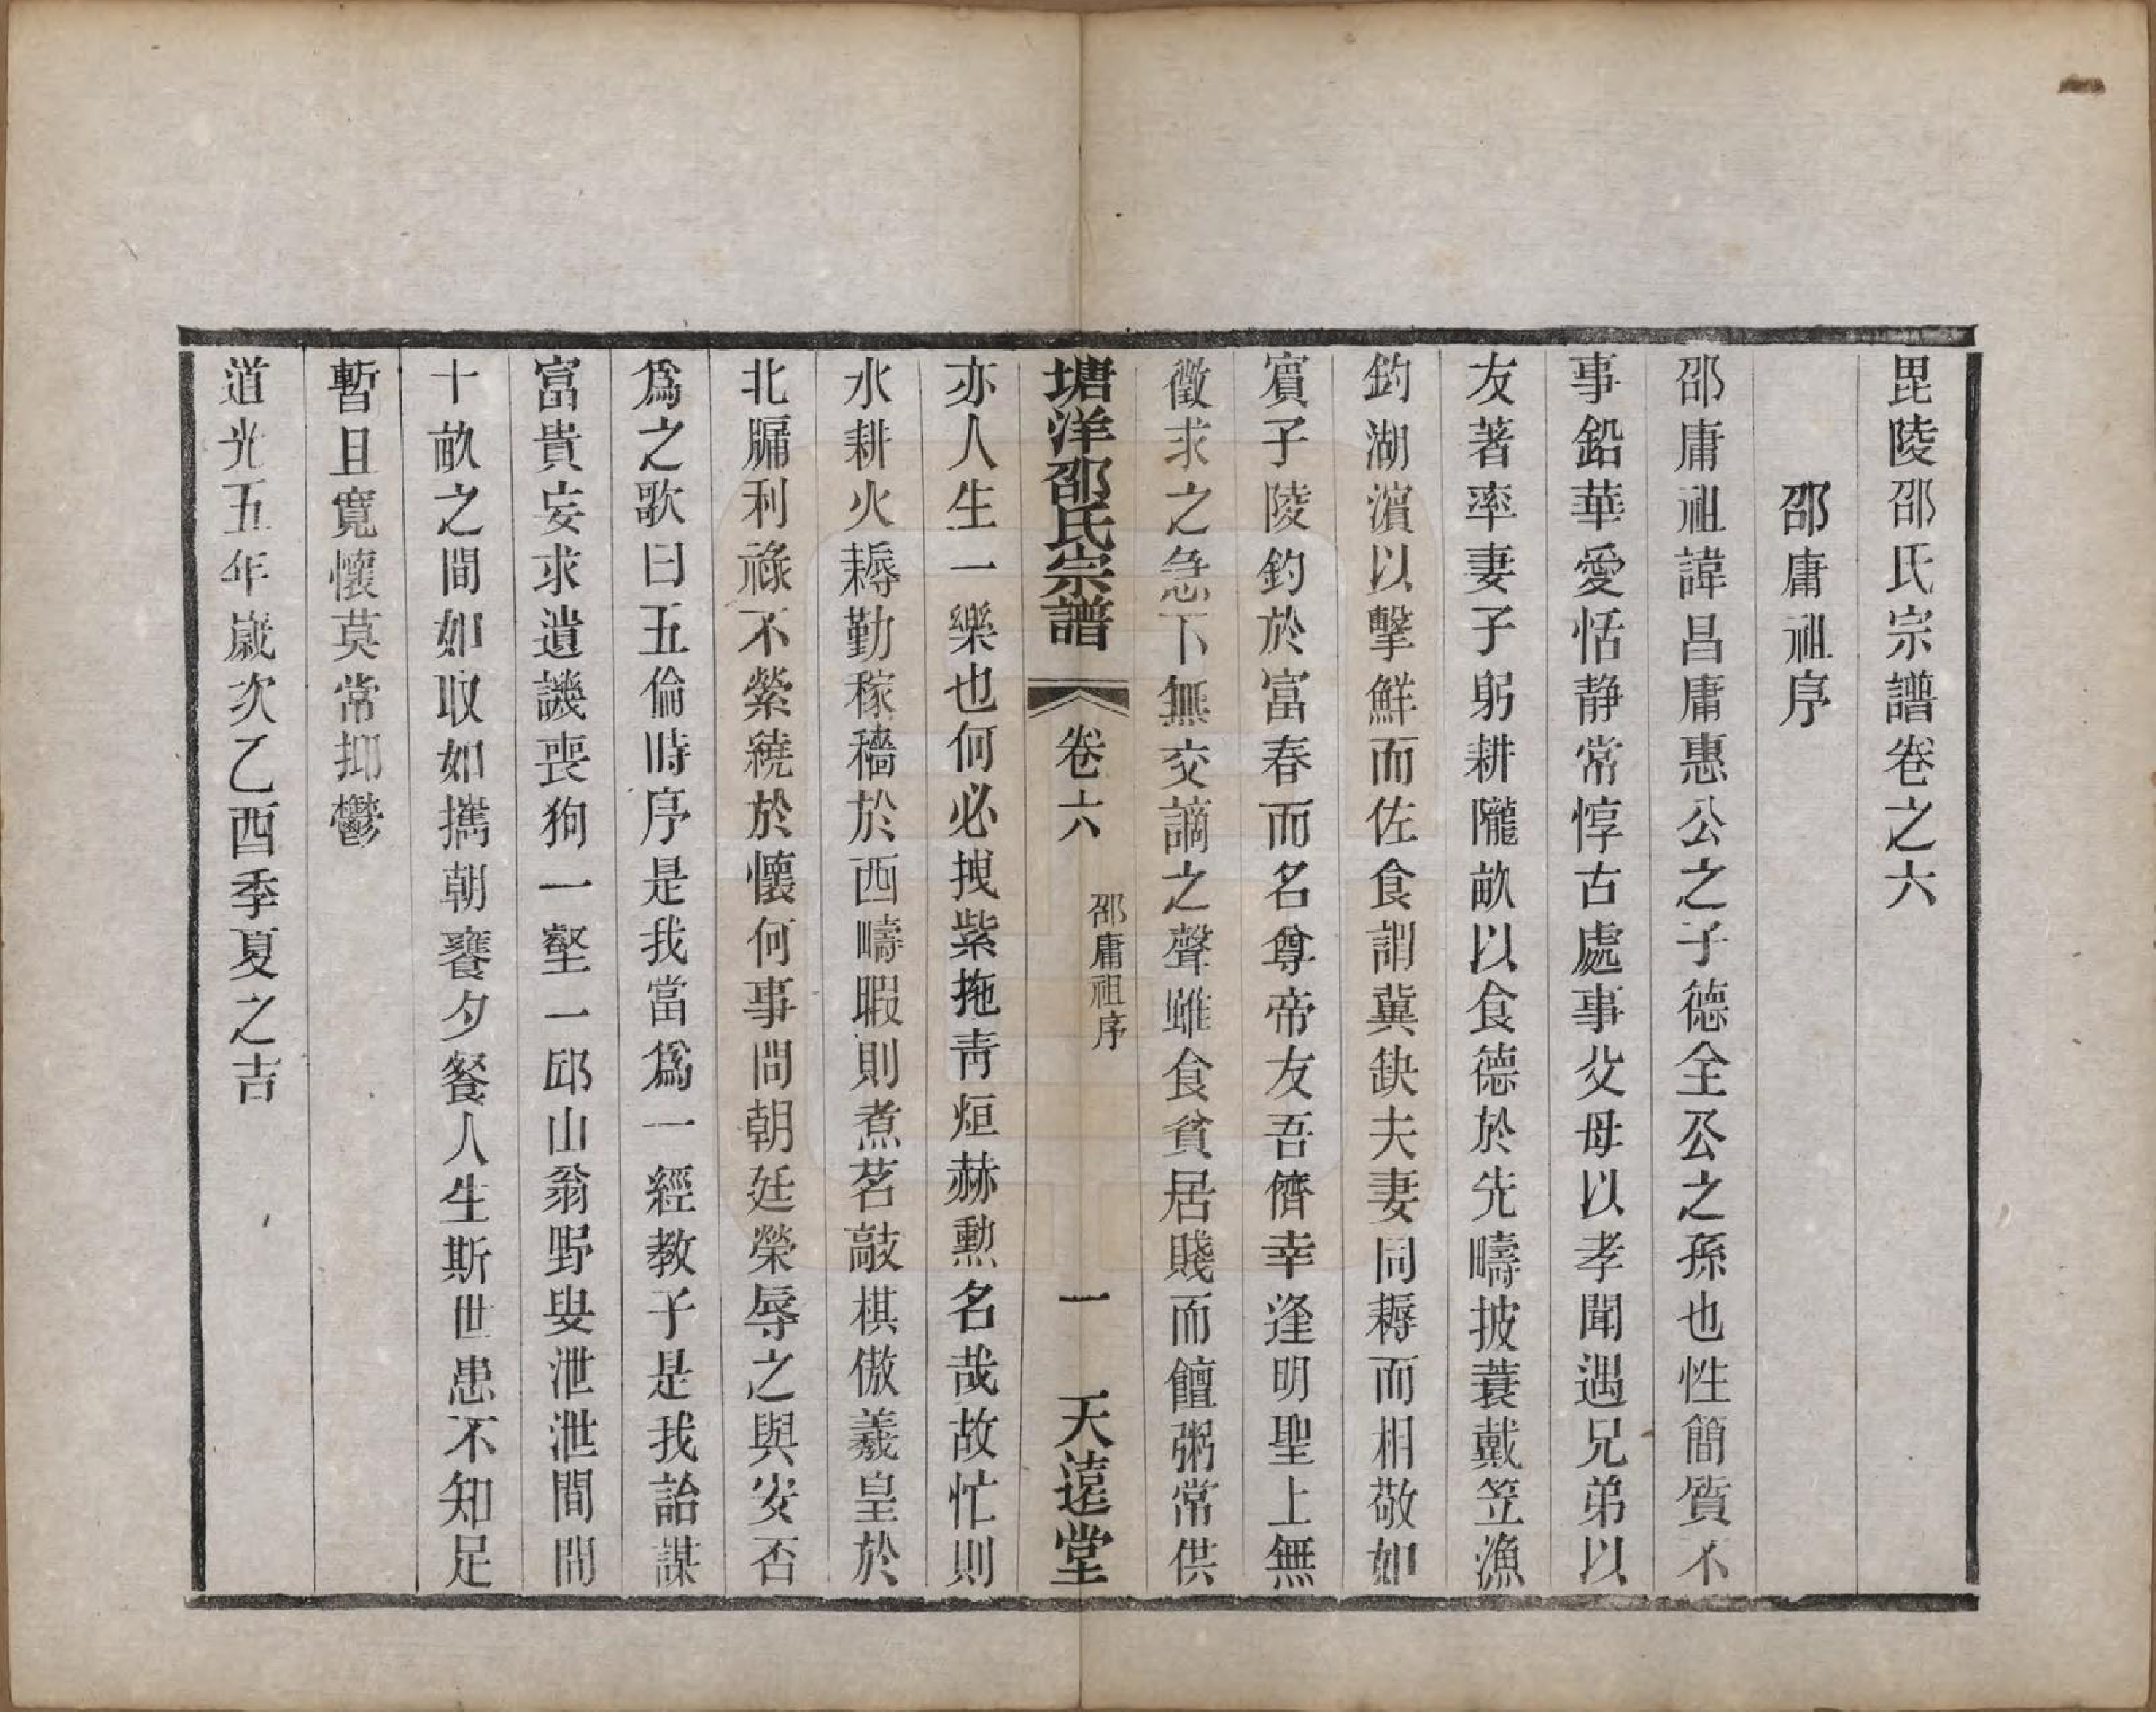 毘陵邵氏宗譜卷之六
邵庸祖序
邵庸祖諱昌庸惠公之子德全公之孫也性簡質不
事鉛華愛恬静常惇古處事父母以孝聞遇兄弟以
友著率妻子躬耕隴畝以食德於先疇披蓑戴笠漁
釣湖濵以擊鮮而佐食謂冀缺夫妻同耨而相敬如
賓子陵釣於富春而名尊帝友吾儕幸逢明聖上無
徵求之急下無交謫之聲雖食貧居賤而饘粥常供
塘洋邵氏宗譜 卷六 邵庸祖序 一 天遠堂
亦人生一樂也何必拽紫拖青烜赫勲名哉故忙則
水耕火耨勤稼穡於西疇暇則煮茗敲棋傲羲皇於
北牖利祿不縈繞於懷何事問朝廷榮辱之與安否
爲之歌曰五倫時序是我當爲一經教子是我詒謀
富貴妄求遺譏喪狗一壑一邱山翁野叟泄泄閒閒
十畝之間如取如攜朝饔夕餐人生斯世患不知足
暫且寬懷莫常抑鬱
道光五年歲次乙酉季夏之吉